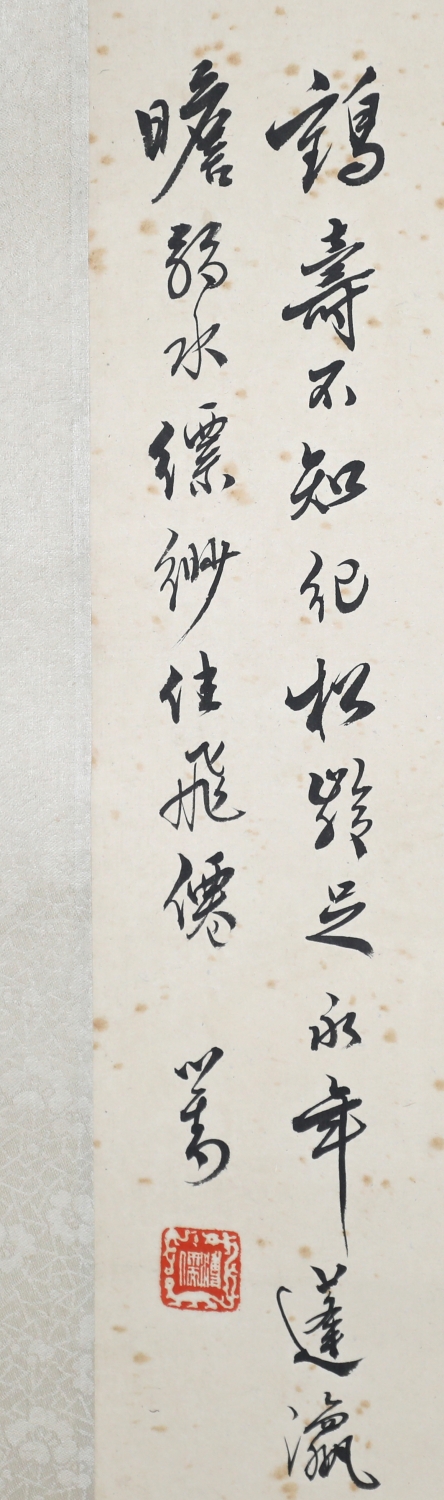 鶴壽不知紀松齡足永年蓬瀛
瞻弱水縹緲住飛僊
心畬